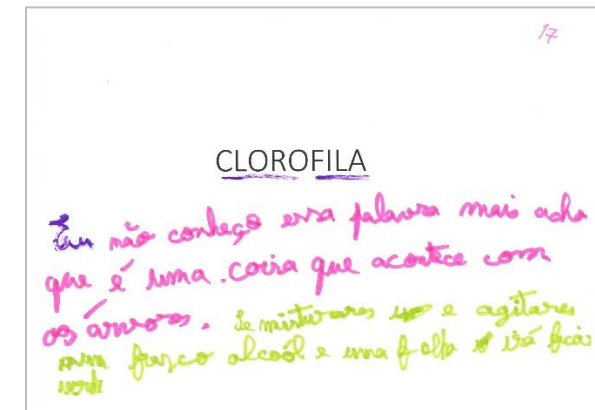 17
CLOROFILA
Eu não conheço essa palavra mais acho
que é uma coisa que acontece com
as arvores. Se misturares e agitares
num frasco alcoól e uma folha irá ficar
verde